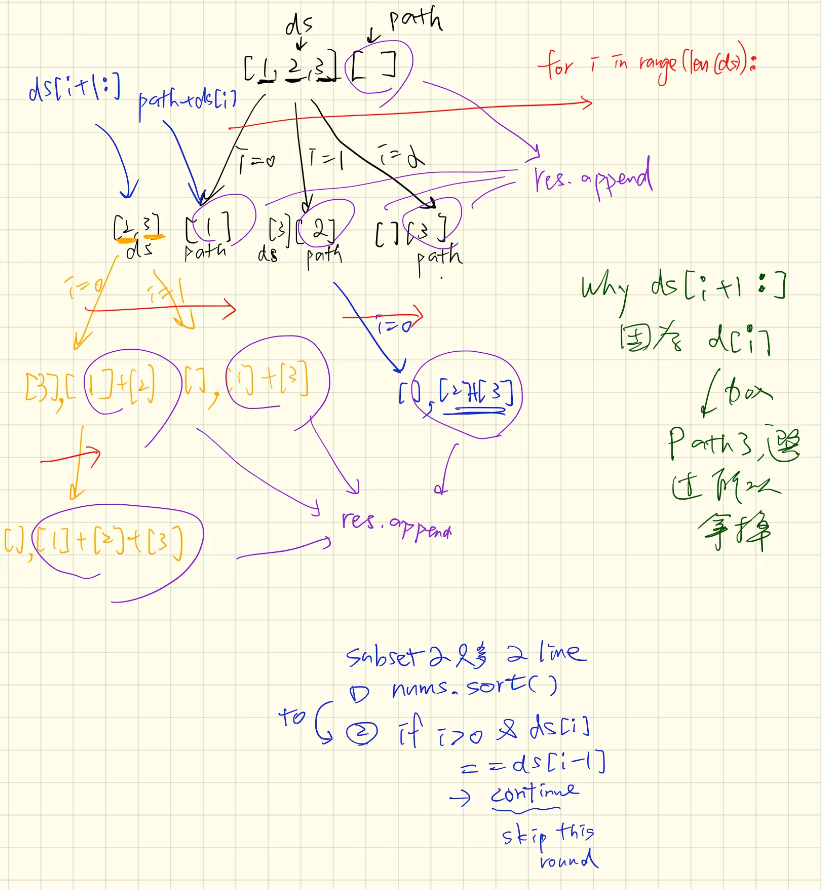 ds
path
[1,2,3] [ ]
for i in range(len(ds):
ds[i+1:]
path+ds[i]
i=0
i=1
i=2
res.append
[2,3] [1] [3][2] [][3]
ds path ds path path
i=0
i=1
i=0
[3],[1]+[2] [],[1]+[3] [],[2]+[3]
[],[1]+[2]+[3]
res.append
why ds[i+1:]
因为 d[i]
Path了,
过所以
拿掉
subset2 只多 2 line
① nums.sort()
to
② if i>0 & ds[i]
==ds[i-1]
→ continue
skip this
round